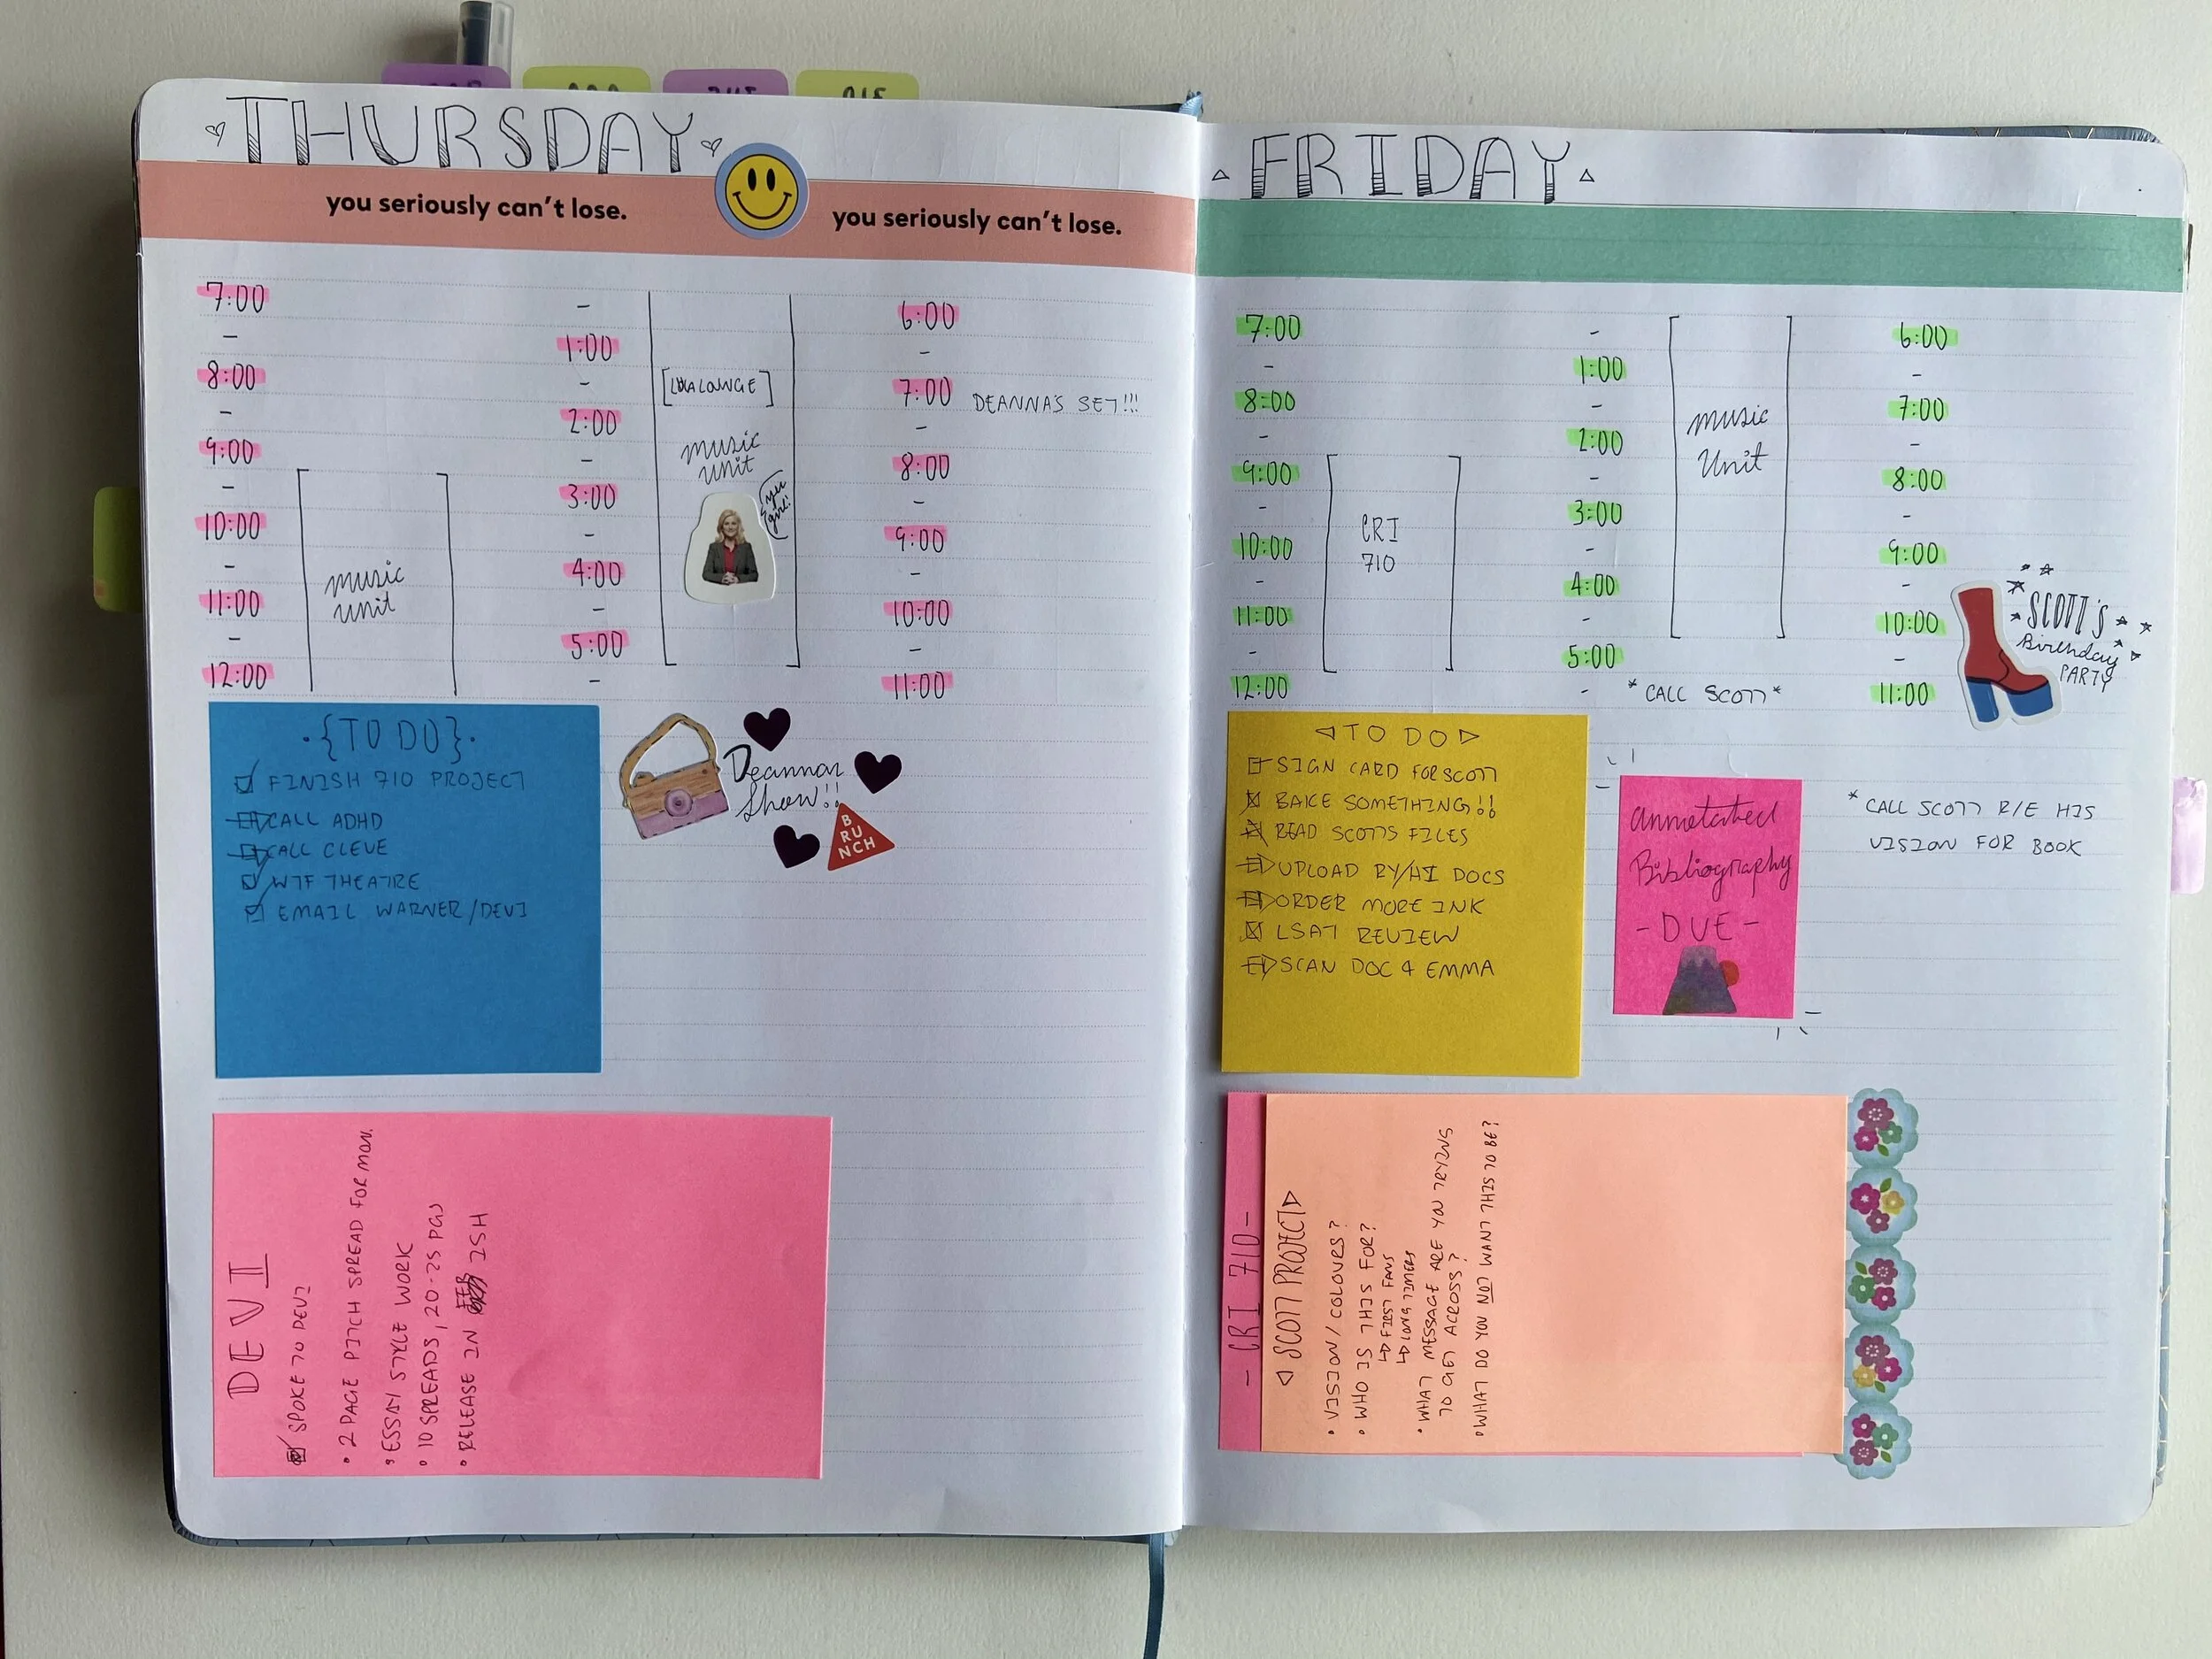 THURSDAY
you seriously can't lose.
you seriously can't lose.
7:00
-
8:00
-
9:00
-
10:00
-
11:00
-
12:00
music
unit
-
1:00
-
2:00
-
3:00
-
4:00
-
5:00
-
LOUNGE
music
unit
yes
girl!
6:00
-
7:00 DEANNA'S SET!!!
-
8:00
-
9:00
-
10:00
-
11:00
·{TO DO}·
FINISH 710 PROJECT
CALL ADHD
CALL CLEVE
WTF THEATRE
EMAIL WARNER/DEVI
Deannas
Show!!
B
RU
NCH
DEVI
SPOKE TO DEVI
• 2 PAGE PITCH SPREAD FOR MON.
• ESSAY STYLE WORK
• 10 SPREADS, 20-25 PGS
• RELEASE IN FEB ISH
FRIDAY
7:00
-
8:00
-
9:00
-
10:00
-
11:00
-
12:00
CRI
710
-
1:00
-
2:00
-
3:00
-
4:00
-
5:00
- *CALL SCOTT*
music
Unit
6:00
-
7:00
-
8:00
-
9:00
-
10:00
-
11:00
SCOTT'S
Birthday
PARTY
TO DO
SIGN CARD FOR SCOTT
BAKE SOMETHING!!
READ SCOTTS FILES
UPLOAD RY/HI DOCS
ORDER MORE INK
LSAT REVIEW
SCAN DOC 4 EMMA
Annotated
Bibliography
- DUE -
* CALL SCOTT R/E HIS
VISION FOR BOOK
- CRI 710 -
SCOTT PROJECT
• VISION / COLOURS?
• WHO IS THIS FOR?
↳ FIRST FANS
↳ LONG TIMERS
• WHAT MESSAGE ARE YOU TRYING
TO GET ACROSS?
• WHAT DO YOU NOT WANT THIS TO BE?